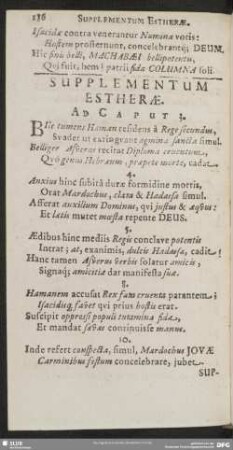 136 SUPPLEMENTUM ESTHERÆ.
Isacidæ contra venerantur Numina votis:
Hostem prosternunt, concelebrantq; DEUM.
Hîc finis belli, MACHABÆI bellipotentis,
Qui fuit, hem! patrii fida COLUMNA soli.
SUPPLEMENTUM
ESTHERÆ.
AD CAPUT 3.
Hic tumens Hamam residens à Rege secundus,
Suadet ut extinguant agmina sancta simul.
Belliger Assverus recitat Diploma cruentum,
Quô genus Hebræum, præpete morte, cadat.
4.
Anxius hinc subitâ duræ formidine mortis,
Orat Mardochæus, clara & Hadassa simul.
Afferat auxilium Dominus, qui justus & æquus:
Et lætis mutet mœsta repente DEUS.
5.
Ædibus hinc mediis Regis conclave potentis
Intrat; at, exanimis, dulcis Hadassa, cadit.
Hanc tamen Assverus verbis solatur amicis,
Signaq; amicitiæ dat manifesta suæ.
8.
Hamanem accusat Rex fata cruenta parantem;
Isacidisq, favet qui prius hostis erat.
Suscipit oppressi populi tutamina fidæ,
Et mandat sævas continuisse manus.
10.
Inde refert conspecta, simul, Mardochus JOVÆ
Carminibus festum concelebrare, jubet.
SUP-